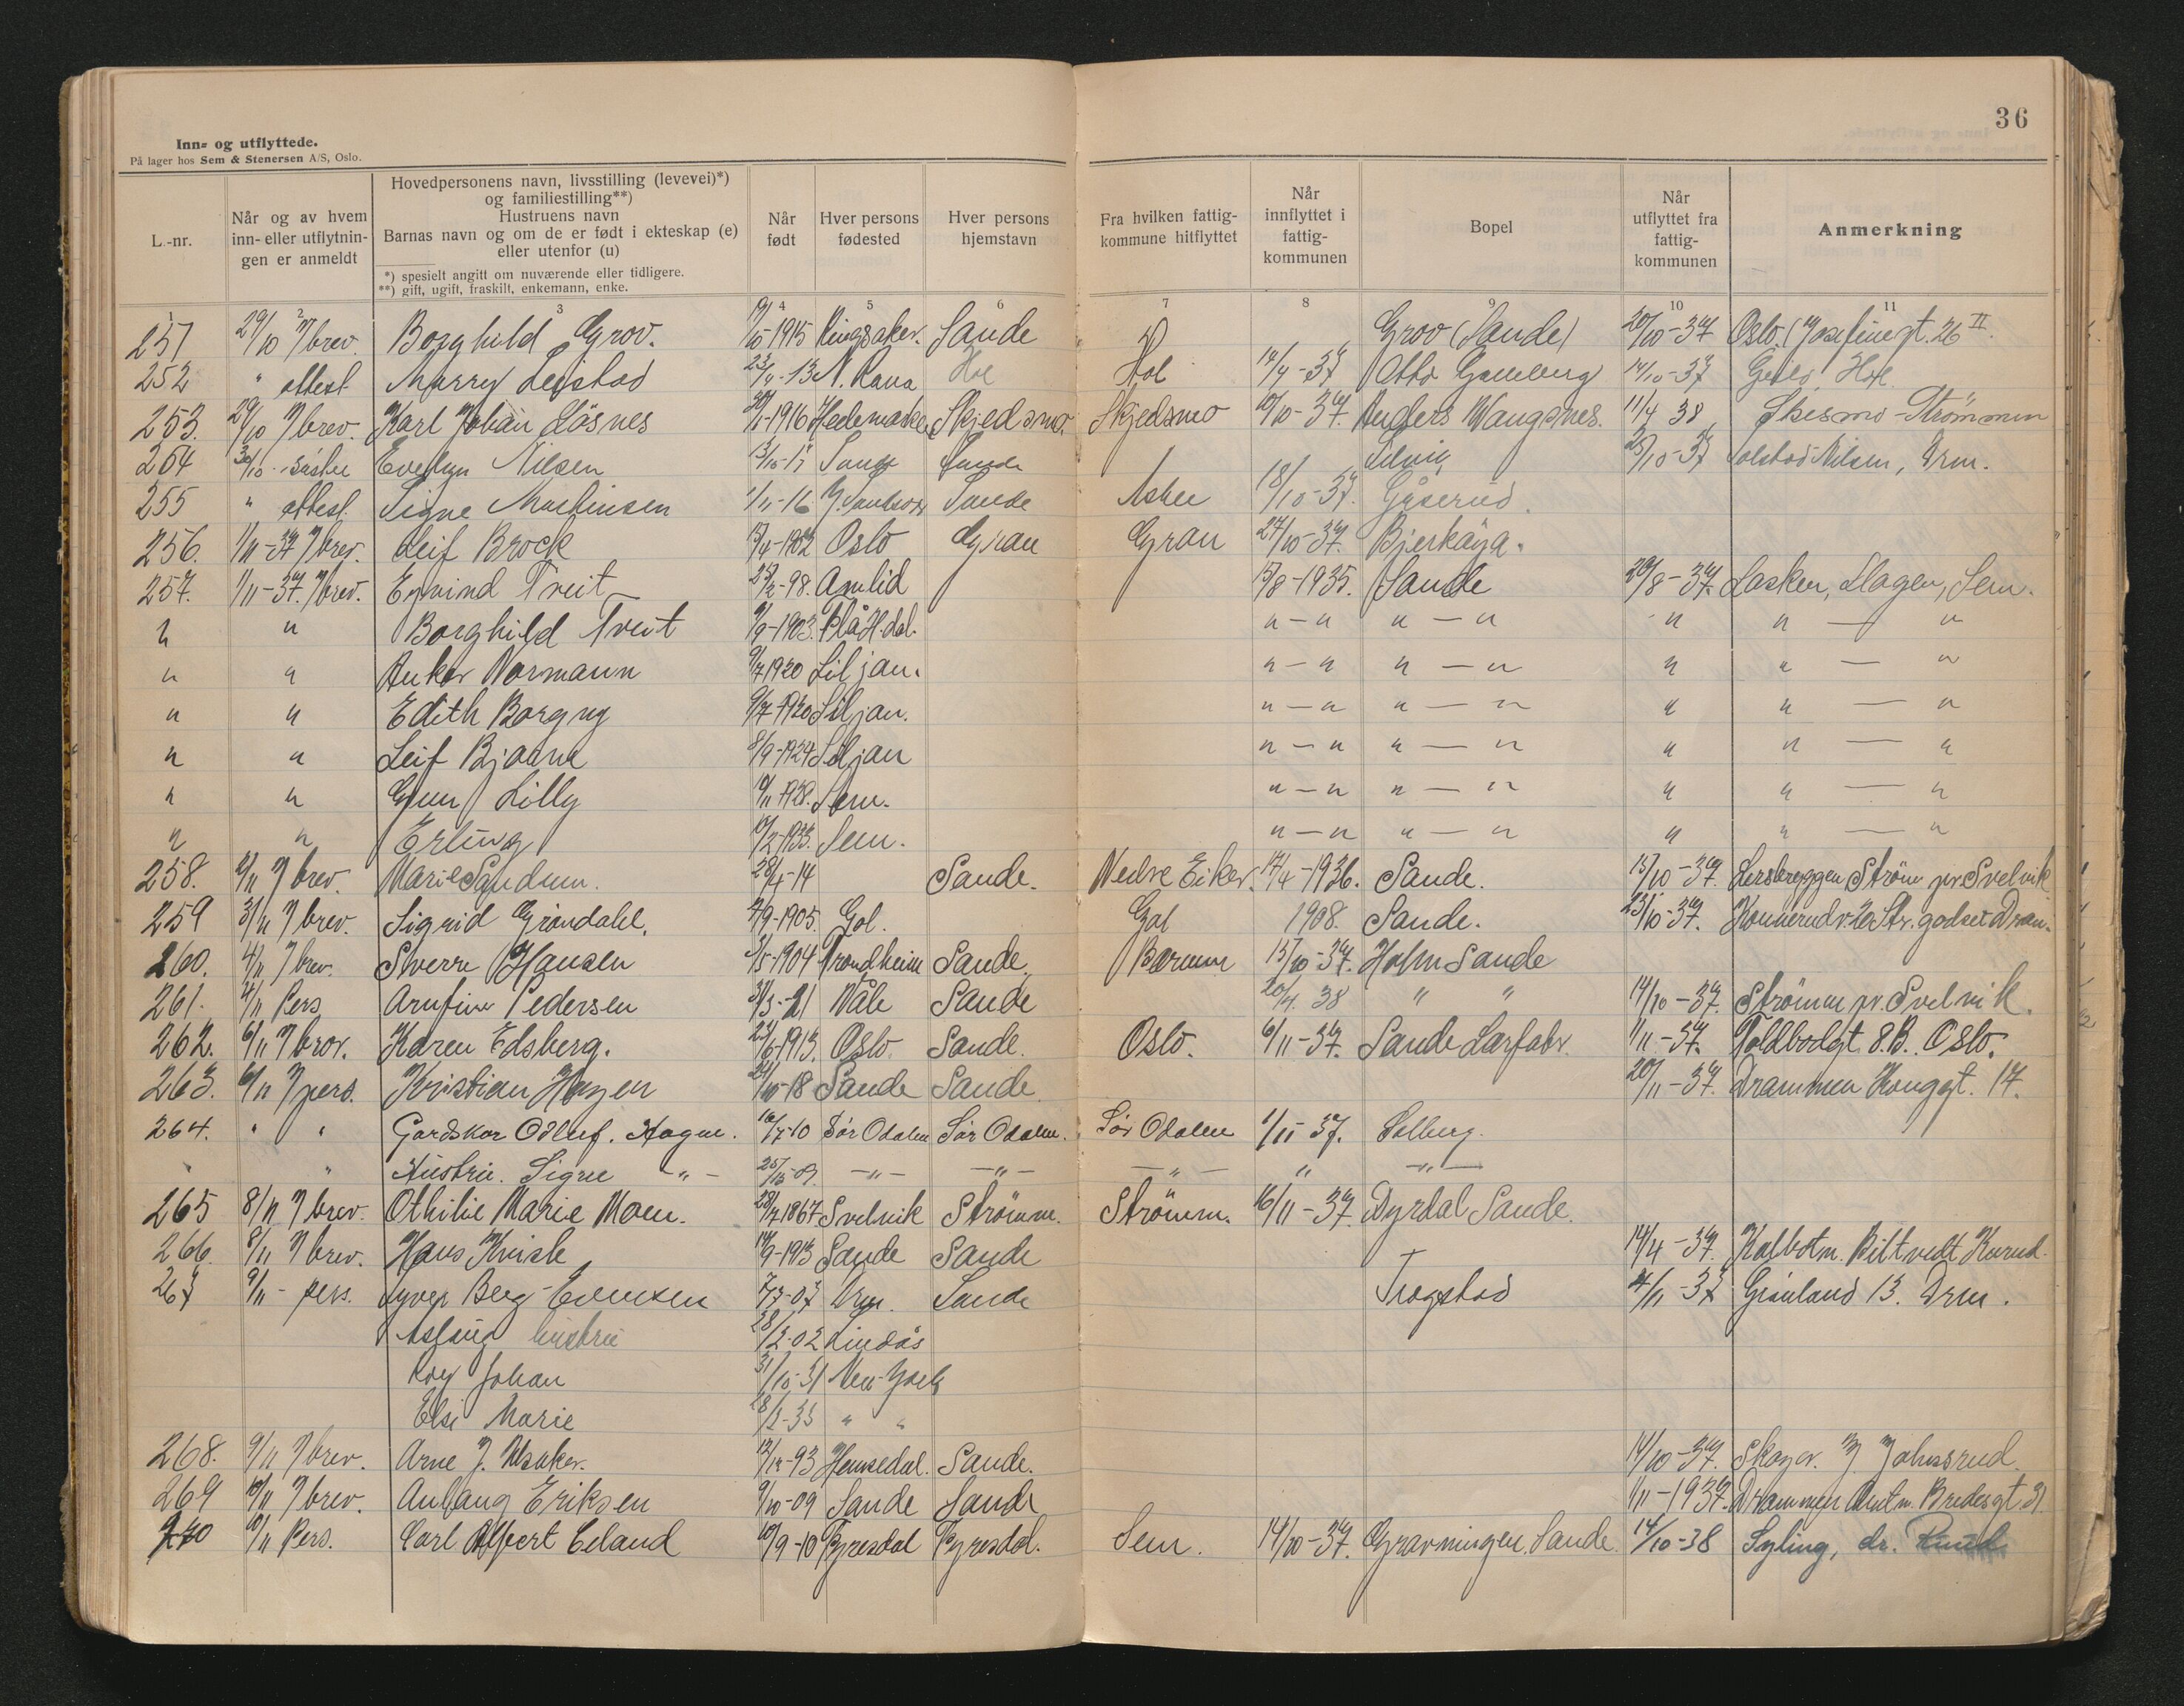 36
Inn- og utflyttede.
På lager hos Sem & Stenersen A/S, Oslo.
L.-nr. | Når og av hvem inn- eller utflytningen er anmeldt | Hovedpersonens navn, livsstilling (levevei)*) og familiestilling**) Hustruens navn Barnas navn og om de er født i ekteskap (e) eller utenfor (u) *) spesielt angitt om nuværende eller tidligere. **) gift, ugift, fraskilt, enkemann, enke. | Når født | Hver persons fødested | Hver persons hjemstavn | Fra hvilken fattigkommune hitflyttet | Når innflyttet i fattigkommunen | Bopel | Når utflyttet fra fattigkommunen | Anmerkning
1 2 3 4 5 6 7 8 9 10 11
251 29/10 brev. Borghild Grov. -1915 Ringsaker. Sande Grov (Sande) 20/10-37 Oslo. (Josefinegt. 26 II.
252 " attest Marry 23/11-13 N. Rana Hol Hol 14/4-37 Otto 14/10-37 Geilo, Hol
253. 29/10 brev. Karl Johan Løsnes -1916 Hedemarken Skjedsmo. Skjedsmo 10/10-37. Anders Wangsnes. 11/4 38 Skesmo-Strømmen
254 30/10 Evelyn Nilsen 13/10-17 Sande Sande Selvik 25/10-37 Solstad Nilsen, Drm.
255 " attest. Signe Martinsen 1/11-16 Sande Asker 18/10-37. Gåserud.
256. 1/11-37 brev. Leif Brock 13/4-1902 Oslo Gran Gran 27/10-37. Bjerkøya.
257. 1/11-37. brev. Eyvind Tveit 25/2-98. Åmlid 15/8-1935. Sande 20/8-37. Lasken, Slagen, Sem.
" " Borghild Tveit /9-1903. Flå H.dal. "-" "-" " "-"
" " Anker Normann 9/7 1920 Siljan. "-" "-" " "-"
" " Edith Borgny 9/7-1920 Siljan. "-" "-" " "-"
" " Leif Bjarne 8/9-1924 Siljan "-" "-" " "-"
" " Gun Lilly 10/11-1928. Sem. "-" "-" " "-"
" " Erling 10/2-1933. Sem. "-" "-" " "-"
258. 2/11 brev. Marie Sandum. 28/4-14 Sande. Nedre Eiker. 17/4-1936. Sande. 15/10-37. Lersbryggen Strøm pr Svelvik
259 3/11 brev. Sigrid Grøndahl. /9-1905. Gol. Gol 1908. Sande. 23/10-37. Konnerud Str.godset Dram.
260. 4/11 brev. Sverre Hansen 3/5-1904 Trondheim Sande. Bærum 15/10-37. Holm Sande
261. 4/11 Pers Arnfinn Pedersen 31/3-21 Våle Sande 20/4. 38 " " 14/10-37. Strømm pr. Svelvik.
262. 6/11 brev. Karen Edsberg. 22/6-1913. Oslo Sande. Oslo. 6/11-37. Sande Larfabr. 1/11-37. Toldbodgt. 8.B. Oslo.
263. 6/11 pers. Kristian Hagen 24/10-18 Sande Sande. 20/11-37. Drammen Konggt. 17.
264. " " Gardskar Odluf. Hagen. 16/7-10 Sør Odalen Sør Odalen. Sør Odalen 1/11-37. Solberg.
" " Hustru. Signe -"- 25/12-09. -"- -"- -"- " -"-
265 8/11 brev. Othilie Marie Moen. 28/7 1867 Svelvik Strømm. Strømm. 16/11-37. Dyrdal Sande.
266. 8/11 brev. Hans Kvisle 14/9-1913 Sande Sande 14/4-37. Kolbotn.
267 9/11- pers. Syver Berg-Evensen 7/3-07 Drm. Sande Trogstad 4/11-37 Grønland 13. Drm.
Aslaug hustru 28/12-02 Lindås
Roy Johan 31/10-31 New-York
Elsi Marie 28/2-35 " "
268. 9/11 brev. Arne J. 12/12-93 Hemsedal. Sande. 14/10-37. Skoger. J. Johnsrud.
269 10/11 brev. Anlaug Eriksen 9/10-09 Sande Sande 1/11-1937. Drammen Amtm. Bredesgt 21
270 10/11 Pers. Carl Alfert Eeland 10/9-10 Fyresdal Fyresdal. Sem. 14/10-37. Gravningen, Sande. 14/10-38 Sylling, dr.